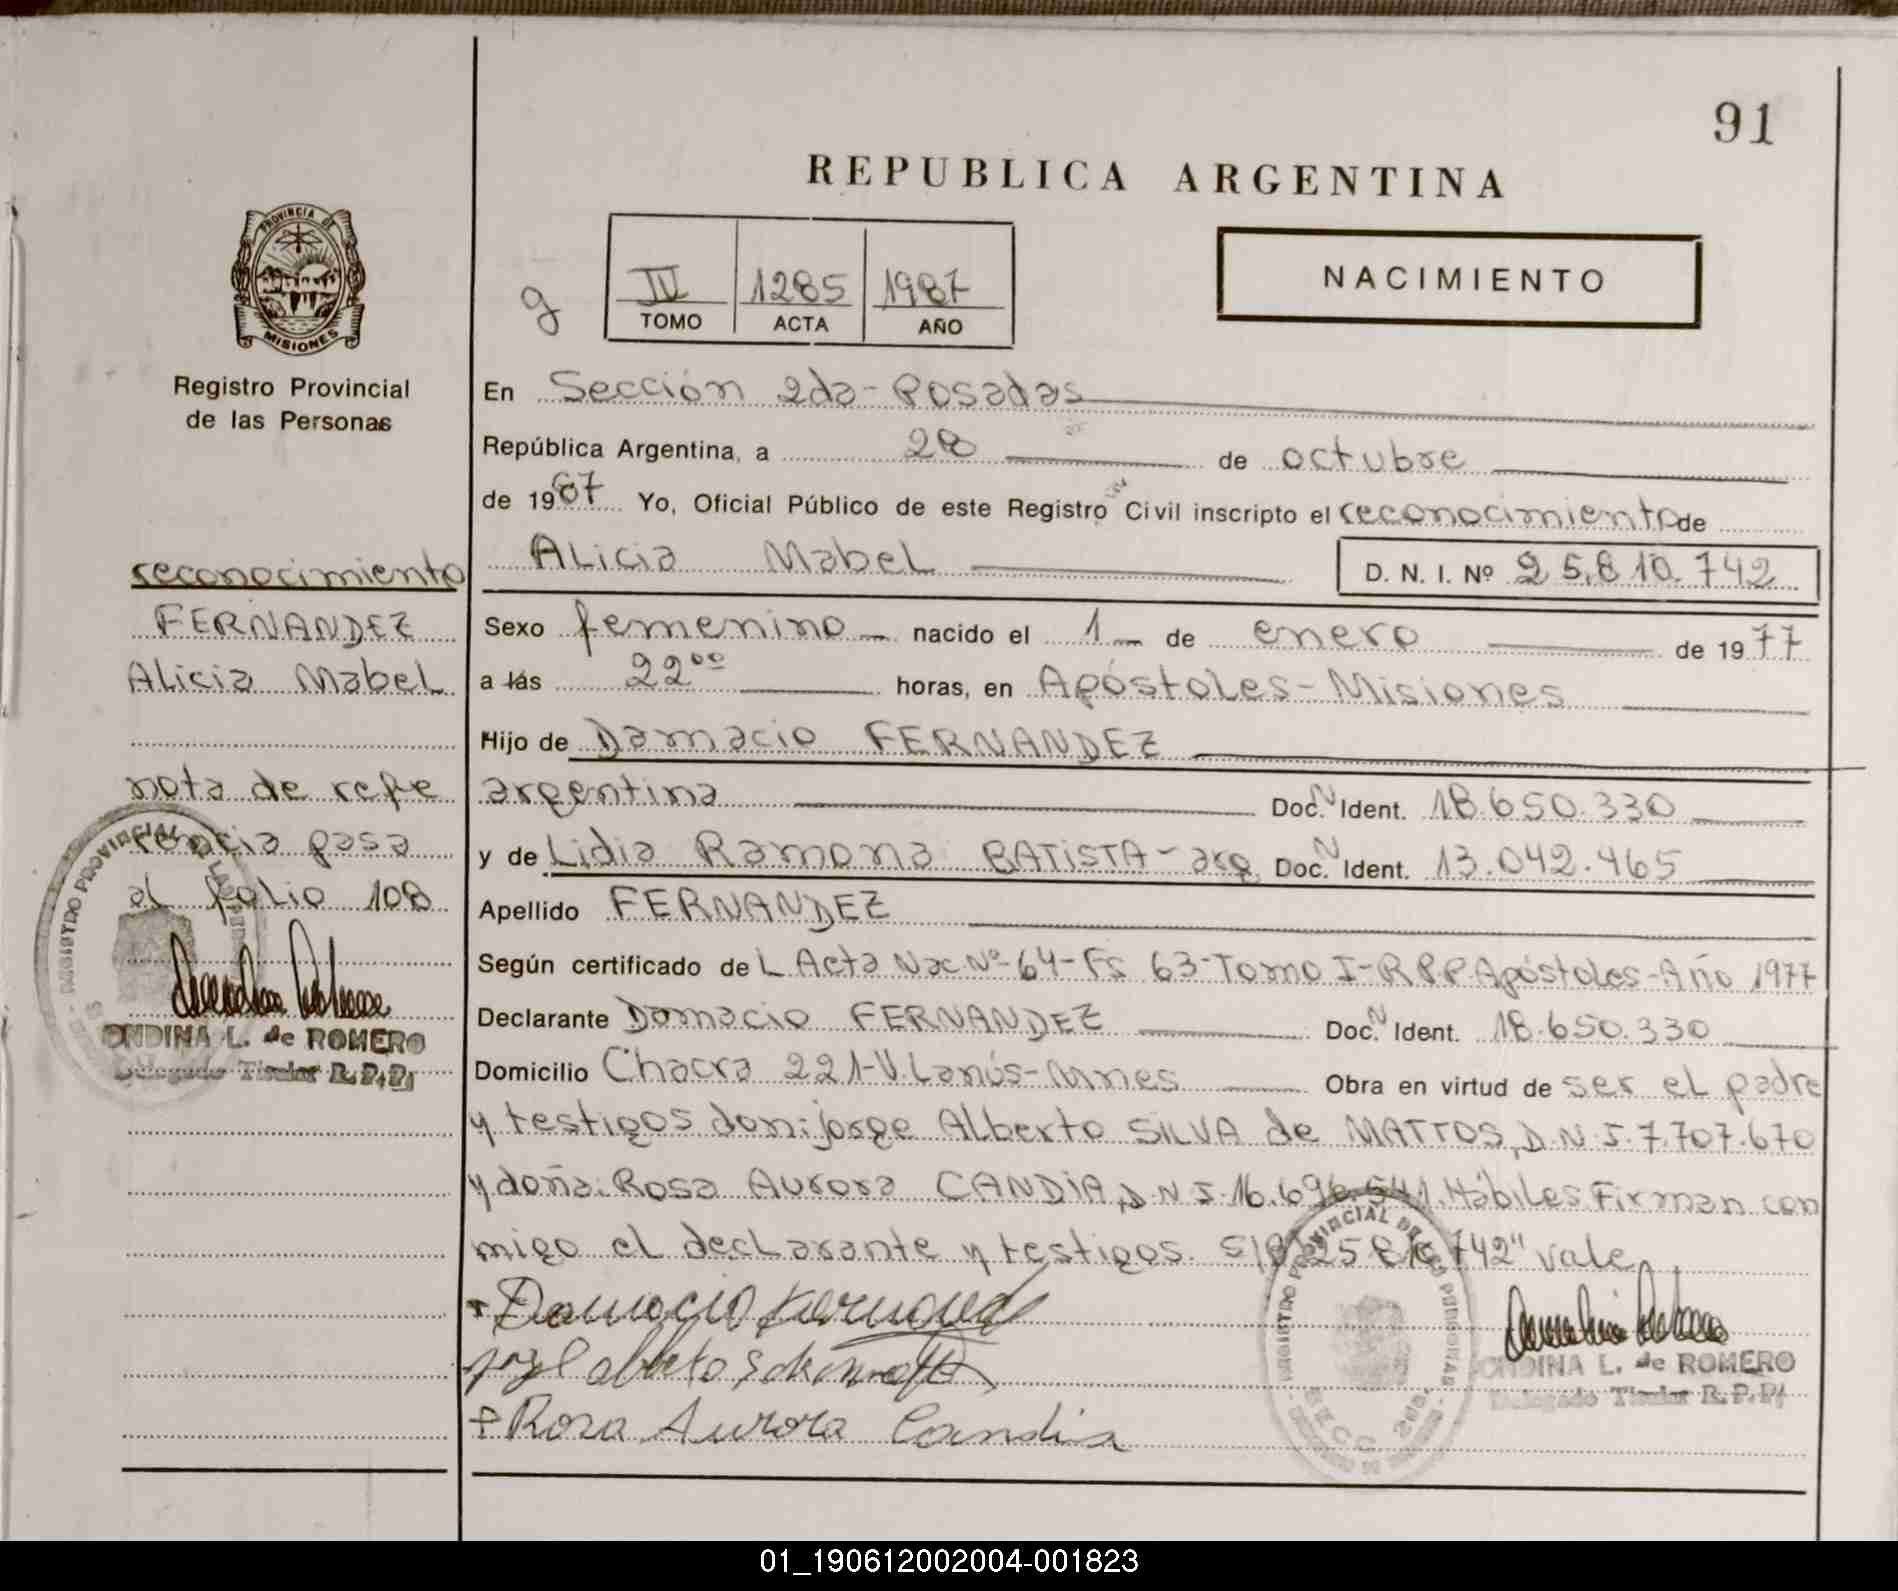 91
REPUBLICA ARGENTINA
PROVINCIA DE
MISIONES
Registro Provincial
de las Personas
g
IV 1285 1987
TOMO ACTA AÑO
NACIMIENTO
En Sección 2da - Posadas
República Argentina, a 28 de octubre
de 1987 Yo, Oficial Público de este Registro Civil inscripto el reconocimiento de
Alicia Mabel D. N. I. Nº 25.810.742
reconocimiento
FERNANDEZ
Alicia Mabel
nota de refe
rencia pasa
al folio 108
ONDINA L. de ROMERO
Delegado Titular R.P.P.
Sexo femenino nacido el 1 de enero de 1977
a las 22⁰⁰ horas, en Apóstoles - Misiones
Hijo de Damacio FERNANDEZ
argentina Doc. N Ident. 18.650.330
y de Lidia Ramona BATISTA - arg. Doc. N Ident. 13.042.465
Apellido FERNANDEZ
Según certificado del Acta Nac. Nº 64 - Fs 63 - Tomo I - R P P Apóstoles - Año 1977
Declarante Damacio FERNANDEZ Doc. N Ident. 18.650.330
Domicilio Chacra 221 - V. Lanús - Mnes Obra en virtud de ser el padre
y testigos don: jorge Alberto SILVA de MATTOS, D.N.I. 7.707.670
y doña: Rosa Aurora CANDIA, D N I. 16.696.541. Hábiles Firman con
migo el declarante y testigos. S/B "25 810 742" vale
Damacio Fernandez
Rosa Aurora Candia
ONDINA L. de ROMERO
Delegado Titular R.P.P.
01_190612002004-001823